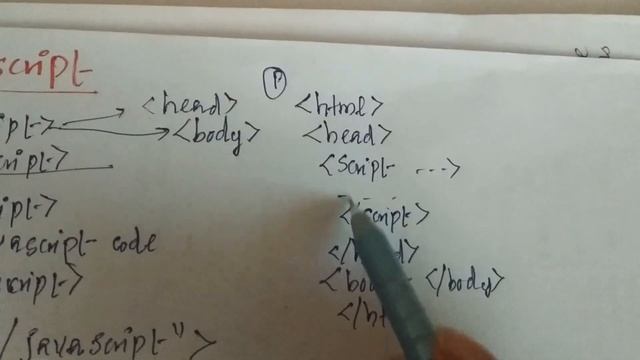 script
<head>
<body>
ipt>
cript>
ipt>
vascript code
cript>
/javascript">
P
<html>
<head>
<script ...>
script>
<body </body>
</ht
</head>